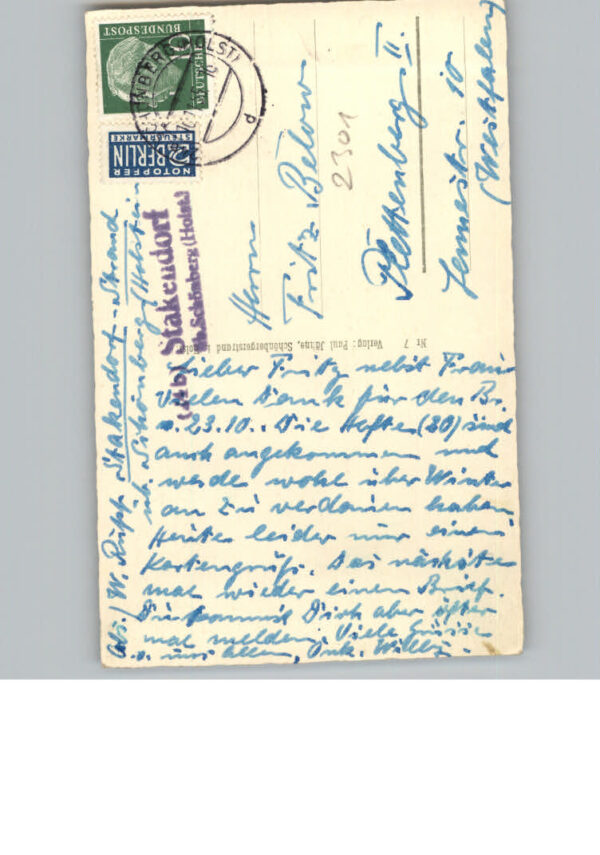 DEUTSCHE
BUNDESPOST
10
NOTOPFER
2 BERLIN
STEUERMARKE
(HOLST)
(24b) Stakendorf
üb. Schönberg (Holst.)
Herrn
Fritz Below
2301
Plettenberg II.
10
(Westfalen)
Nr 7 Verlag: Paul Schönbergerstrand
Abs./ W. Rupp Stakendorf - Strand
üb. Schönberg/Holstein
Lieber Fritz nebst Frau
Vielen Dank für den Br.
v. 23.10. Die Hefte (30) sind
auch angekommen und
werde wohl über Winter
an zu verdauen haben
Heute leider nur einen
Kartengruß. Das nächste
mal wieder einen Brief.
Du kannst Dich aber öfter
mal melden. Viele Grüsse
v. uns allen, Onk. Willy.